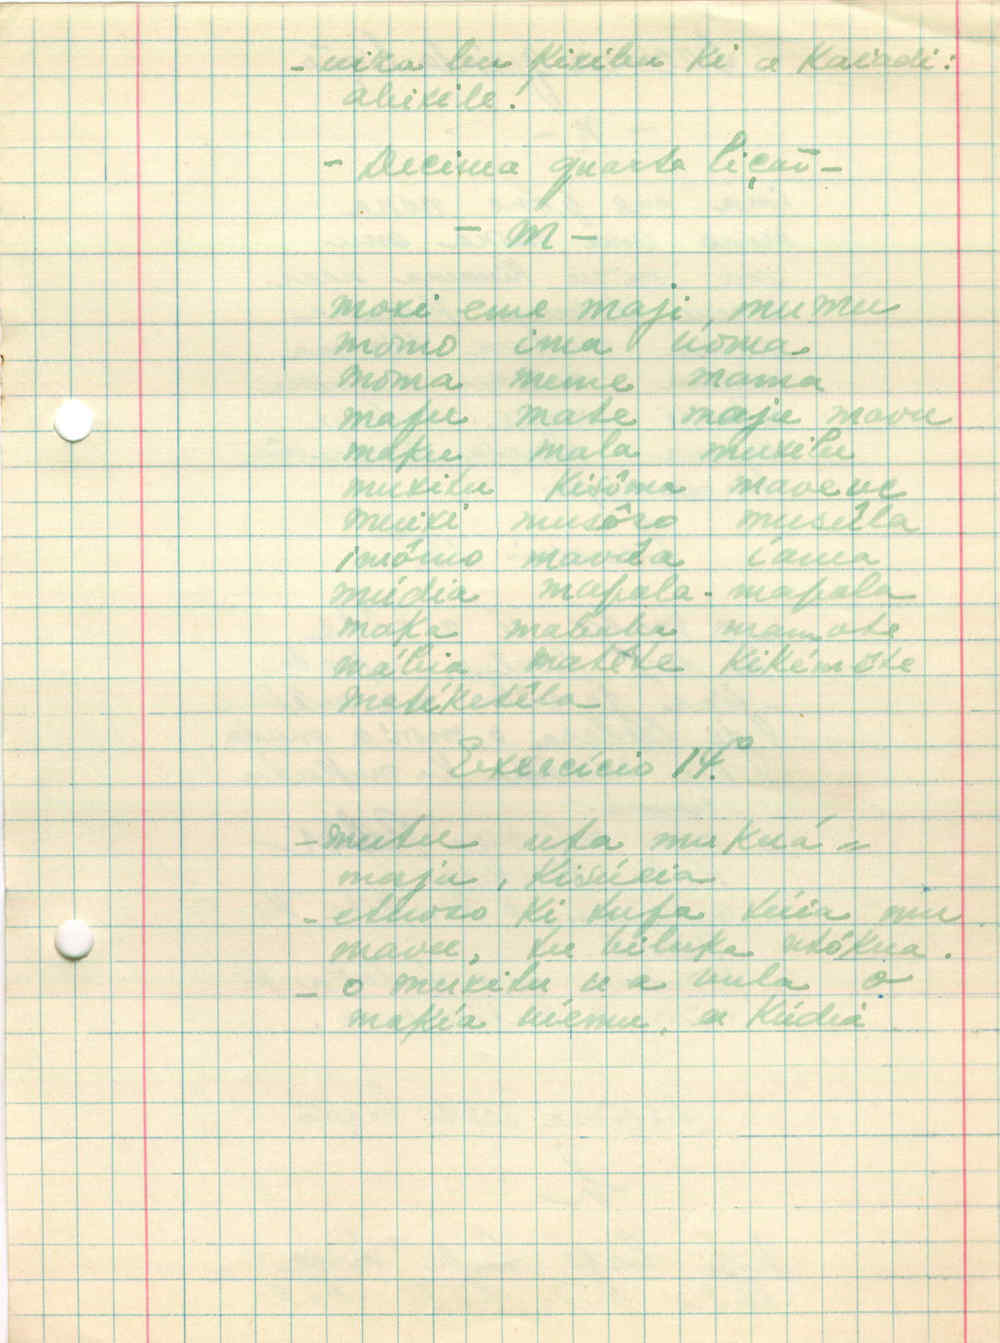 - uixa bu kixibu ki a kaiadi:
abixile!
- Decima quarta lição -
- M -
moxi eme maji, mumu
momo ima uôma
moma meme mama
mafu mate maju mavu
maku mala muxilu
muxitu kisôma maveve
muixi musôso musula
imômo mavula íama
múdia mapala - mapala
maka mababa mamote
mábia matete kikémote
matéketela
Exercício 14.º
- mutu uta mukuá =
maju, kisúeia
- etuoso ki tufa túia mu
mavu, tu biluka utôkua.
- o muxitu u a vula o
makia uiemu, a kúdia